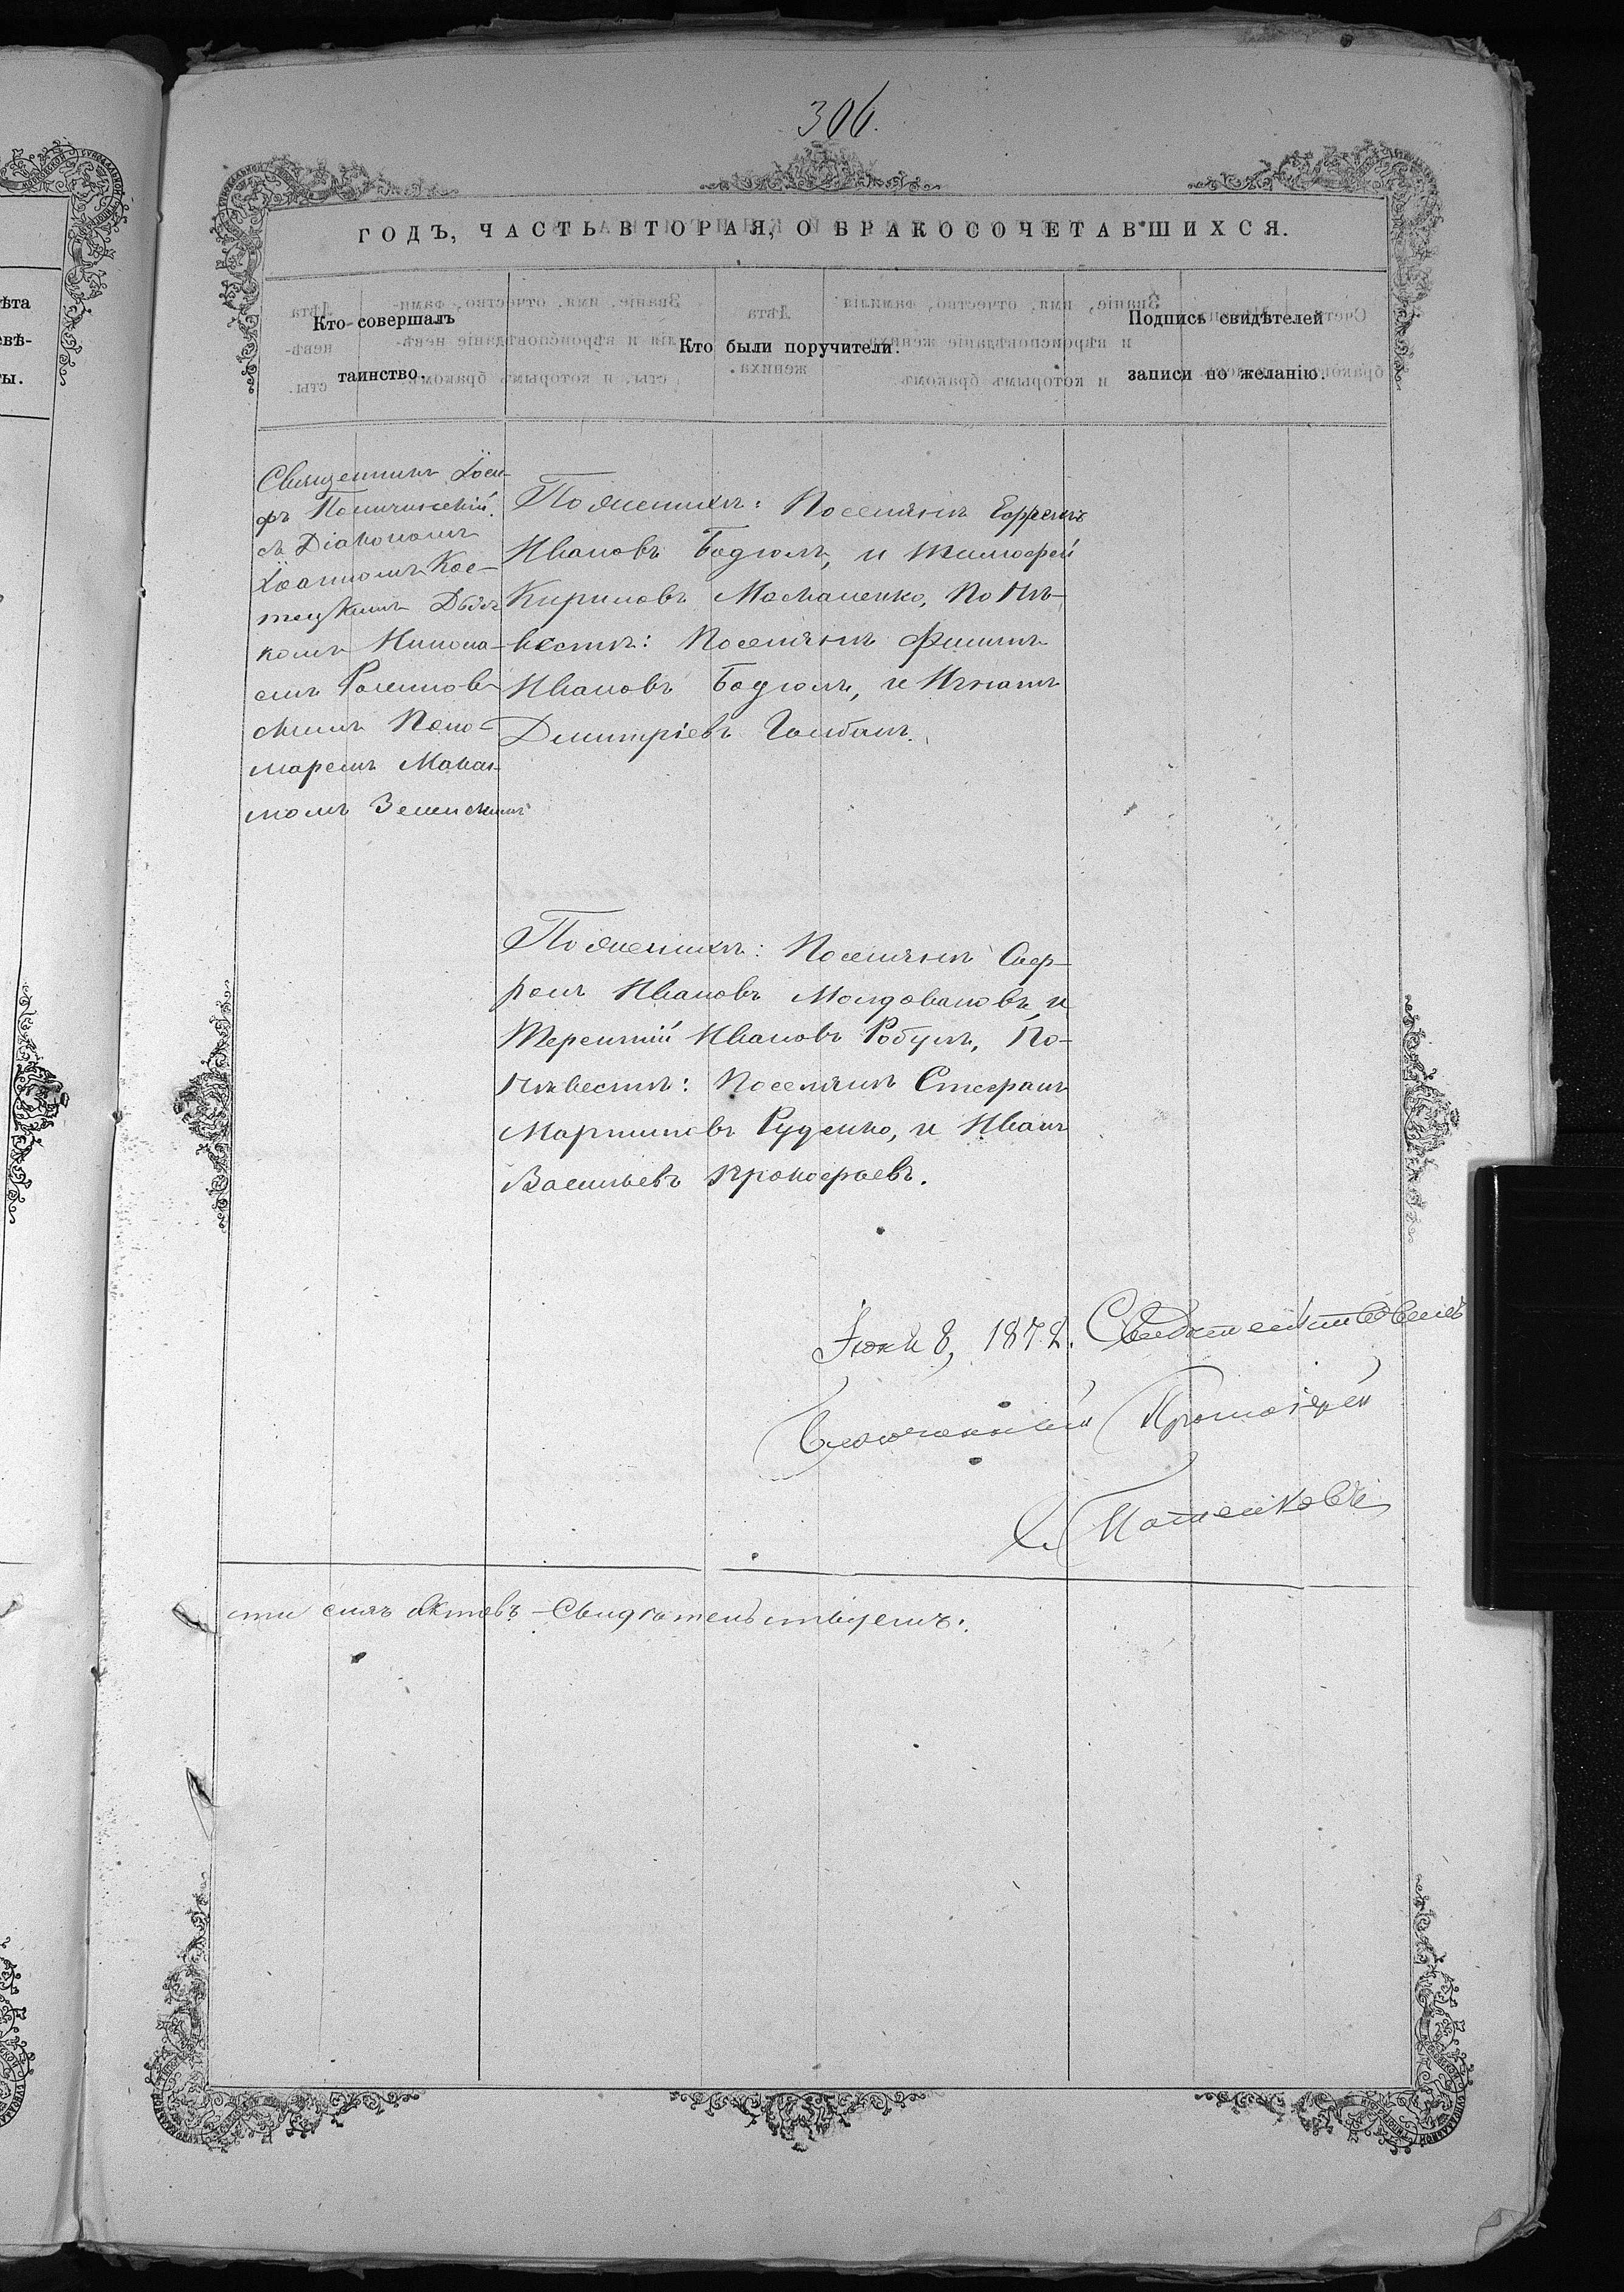 306.
ГОДЪ, ЧАСТЬ ВТОРАЯ, О БРАКОСОЧЕТАВШИХСЯ.
Кто совершалъ
таинство.
Кто были поручители.
Подпись свидѣтелей
записи по желанію.
Священникъ Іоси-
фъ
съ Діакономъ
Іоанномъ Кос-
тецкимъ Дьяч-
комъ Никола-
емъ
скимъ Поно-
маремъ
По женихѣ: Поселянъ Ефремъ
Ивановъ Бодюлъ, и Тимофей
Кириловъ По Нѣ-
вестѣ: Поселянъ Филипъ
Ивановъ Бодюлъ, и Игнатъ
Дмитріевъ Голбанъ.
По женихѣ: Поселянъ Саф-
ронъ Ивановъ Молдовановъ, и
Терентій Ивановъ Робулъ, По-
Нѣвестѣ: Поселянъ Стефанъ
Мартиновъ Руденко, и Иванъ
Васильевъ Прокофьевъ.
Іюня 8, 1872. Свидетельствовалъ
Благочинный Протоіерей
сти сихъ Актовъ Свидѣтельствуемъ:
ѣта
евѣ-
ты.